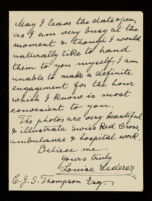 May I leave the date open,
as I am very busy at the
moment & though I would
naturally like to hand
them to you myself, I am
unable to make a definite
engagement for the hour
which I know is most
convenient to you.
The photos are very beautiful
& illustrate Swiss Red Cross,
ambulance & hospital work.
Believe me
Yours truly
Louise Lederer
C.J.S. Thompson Esq.